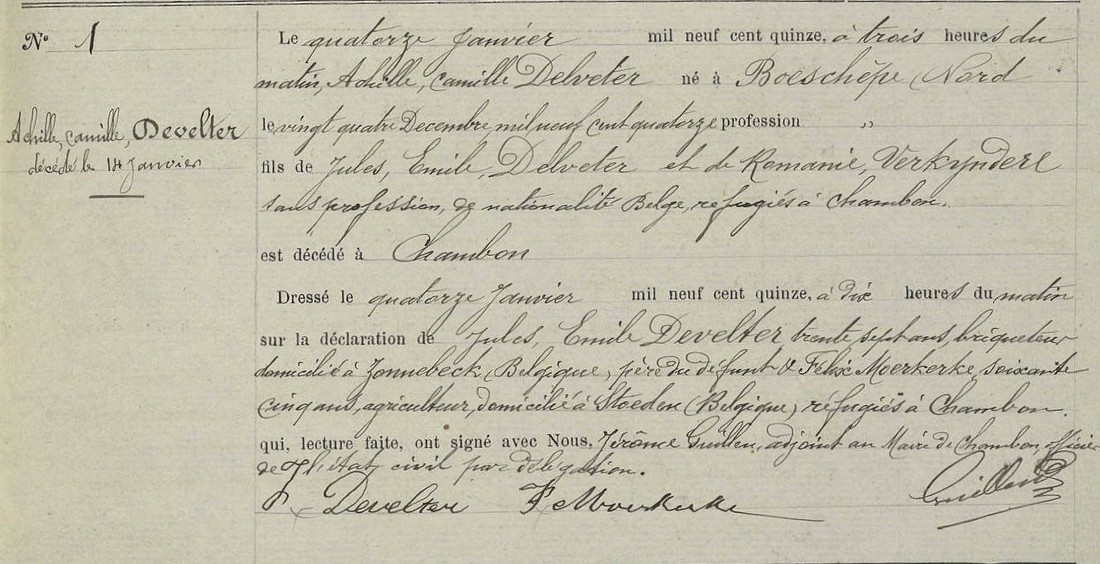 N° 1
Achille, camille, Develter
décédé le 14 Janvier
Le quatorze Janvier mil neuf cent quinze, à trois heures du
matin, Achille, camille, Delveter né à Boeschêpe (Nord
le vingt quatre Decembre mil neuf cent quatorze profession „
fils de Jules, Emile, Delveter et de Romanie, Verkyndere
sans profession, de nationalité Belge, refugiés à Chambon.
est décédé à Chambon
Dressé le quatorze Janvier mil neuf cent quinze, à dix heures du matin
sur la déclaration de Jules, Emile Develter trente sept ans, briqueteur
domicilié à Zonnebeck (Belgique) père du défunt & Félix Moerkerke, soixante
cinq ans, agriculteur, domicilié à Staeden (Belgique) réfugiés à Chambon.
qui, lecture faite, ont signé avec Nous, Jérôme Guillen, adjoint au Maire de Chambon, officier
de l'état civil par délégation.
Develter F Moerkerke Guillen